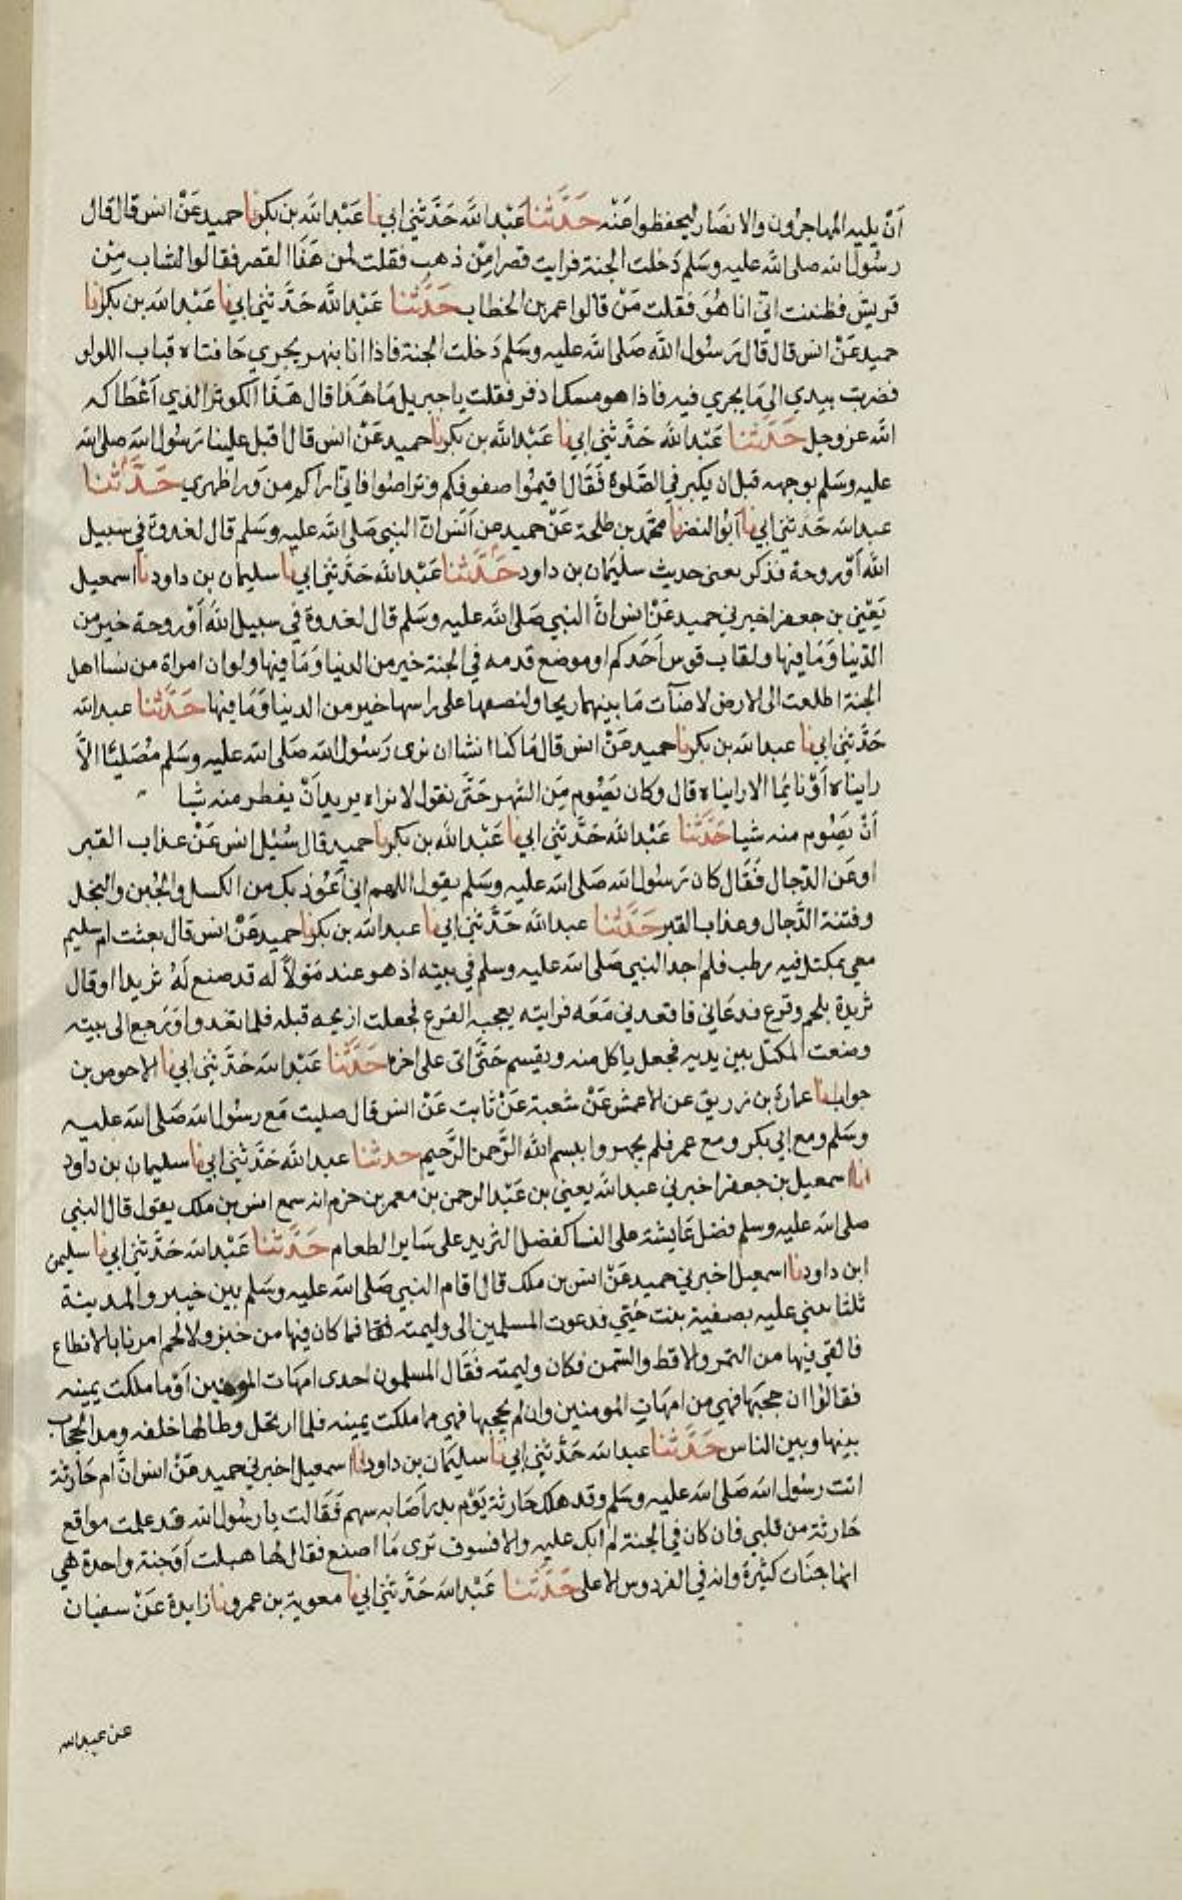 أن يليه المهاجرون والانصار ليحفظوا عنه حدثنا عبد الله حدثني ابي نا عبد الله بن بكر نا حميد عن انس قال قال
رسول الله صلى الله عليه وسلم دخلت الجنة فرايت قصرا من ذهب فقلت لمن هذا القصر فقالوا لشاب من
قريش فظننت اني انا هو فقلت من قالوا عمر بن الخطاب حدثنا عبد الله حدثني ابي نا عبد الله بن بكر انا
حميد عن انس قال قال رسول الله صلى الله عليه وسلم دخلت الجنة فاذا انا بنهر يجري حافتاه قباب اللولو
فضربت بيدي الى ما يجري فيه فاذا هو مسك اذفر فقلت يا جبريل ما هذا قال هذا الكوثر الذي اعطاكه
الله عز وجل حدثنا عبد الله حدثني ابي نا عبد الله بن بكر نا حميد عن انس قال اقبل علينا رسول الله صلى الله
عليه وسلم بوجهه قبل ان يكبر في الصلوة فقال اقيموا صفوفكم وتراصوا فاني اراكم من ورا ظهري حدثنا
عبد الله حدثني ابي نا ابو النضر نا محمد بن طلحة عن حميد عن انس ان النبي صلى الله عليه وسلم قال لغدوة في سبيل
الله او روحة فذكر بمعنى حديث سليمان بن داود حدثنا عبد الله حدثني ابي نا سليمان بن داود نا اسمعيل
يعني بن جعفر اخبرني حميد عن انس ان النبي صلى الله عليه وسلم قال لغدوة في سبيل الله او روحة خير من
الدنيا وما فيها ولقاب قوس احدكم او موضع قدمه في الجنة خير من الدنيا وما فيها ولو ان امراة من نسا اهل
الجنة اطلعت الى الارض لاضات ما بينهما ريحا ولنصفها على راسها خير من الدنيا وما فيها حدثنا عبد الله
حدثني ابي نا عبد الله بن بكر نا حميد عن انس قال ما كنا نشا ان نرى رسول الله صلى الله عليه وسلم مصليا الا
رايناه او نايما الا رايناه قال وكان يصوم من الشهر حتى نقول لا نراه يريد ان يفطر منه شيا
ان يصوم منه شيا حدثنا عبد الله حدثني ابي نا عبد الله بن بكر نا حميد قال سئل انس عن عذاب القبر
او عن الدجال فقال كان رسول الله صلى الله عليه وسلم يقول اللهم اني اعوذ بك من الكسل والجبن والبخل
وفتنة الدجال وعذاب القبر حدثنا عبد الله حدثني ابي نا عبد الله بن بكر نا حميد عن انس قال بعثت ام سليم
معي بمكتل فيه رطب فلم اجد النبي صلى الله عليه وسلم في بيته اذ هو عند مولا له قد صنع له ثريدا او قال
ثريدة بلحم وقرع فدعاني فاقعدني معه فرايته يعجبه القرع فجعلت ازيحه قبله فلما تغدوا ورجع الى بيته
وضعت المكتل بين يديه فجعل ياكل منه ويقسم حتى اتى على اخره حدثنا عبد الله حدثني ابي نا الاحوص بن
جواب نا عمارة بن زريق عن الاعمش عن شعبة عن ثابت عن انس قال صليت مع رسول الله صلى الله عليه
وسلم ومع ابي بكر ومع عمر فلم يجهروا ببسم الله الرحمن الرحيم حدثنا عبد الله حدثني ابي نا سليمان بن داود
انا اسمعيل بن جعفر اخبرني عبد الله يعني بن عبد الرحمن بن معمر بن حزم انه سمع انس بن ملك يقول قال النبي
صلى الله عليه وسلم فضل عايشة على النسا كفضل الثريد على ساير الطعام حدثنا عبد الله حدثني ابي نا سليمن
ابن داود نا اسمعيل اخبرني حميد عن انس بن ملك قال اقام النبي صلى الله عليه وسلم بين خيبر والمدينة
ثلثا يبني عليه بصفية بنت حيي فدعوت المسلمين الى وليمته فما كان فيها من خبز ولا لحم امرنا بالانطاع
فالقي فيها من التمر والاقط والسمن فكان وليمته فقال المسلمون احدى امهات المومنين او ما ملكت يمينه
فقالوا ان حجبها فهي من امهات المومنين وان لم يحجبها فهي مما ملكت يمينه فلما ارتحل وطا لها خلفه ومد الحجاب
بينها وبين الناس حدثنا عبد الله حدثني ابي نا سليمان بن داود انا اسمعيل اخبرني حميد عن انس ان ام حارثة
اتت رسول الله صلى الله عليه وسلم وقد هلك حارثة يوم بدر اصابه سهم فقالت يا رسول الله قد علمت مواقع
حارثة من قلبي فان كان في الجنة لم ابك عليه والا فسوف ترى ما اصنع فقال لها هبلت اوجنة واحدة هي
انما جنات كثيرة وانه في الفردوس الاعلى حدثنا عبد الله حدثني ابي نا معوية بن عمرو نا زايدة عن سفيان
عن عبد الله